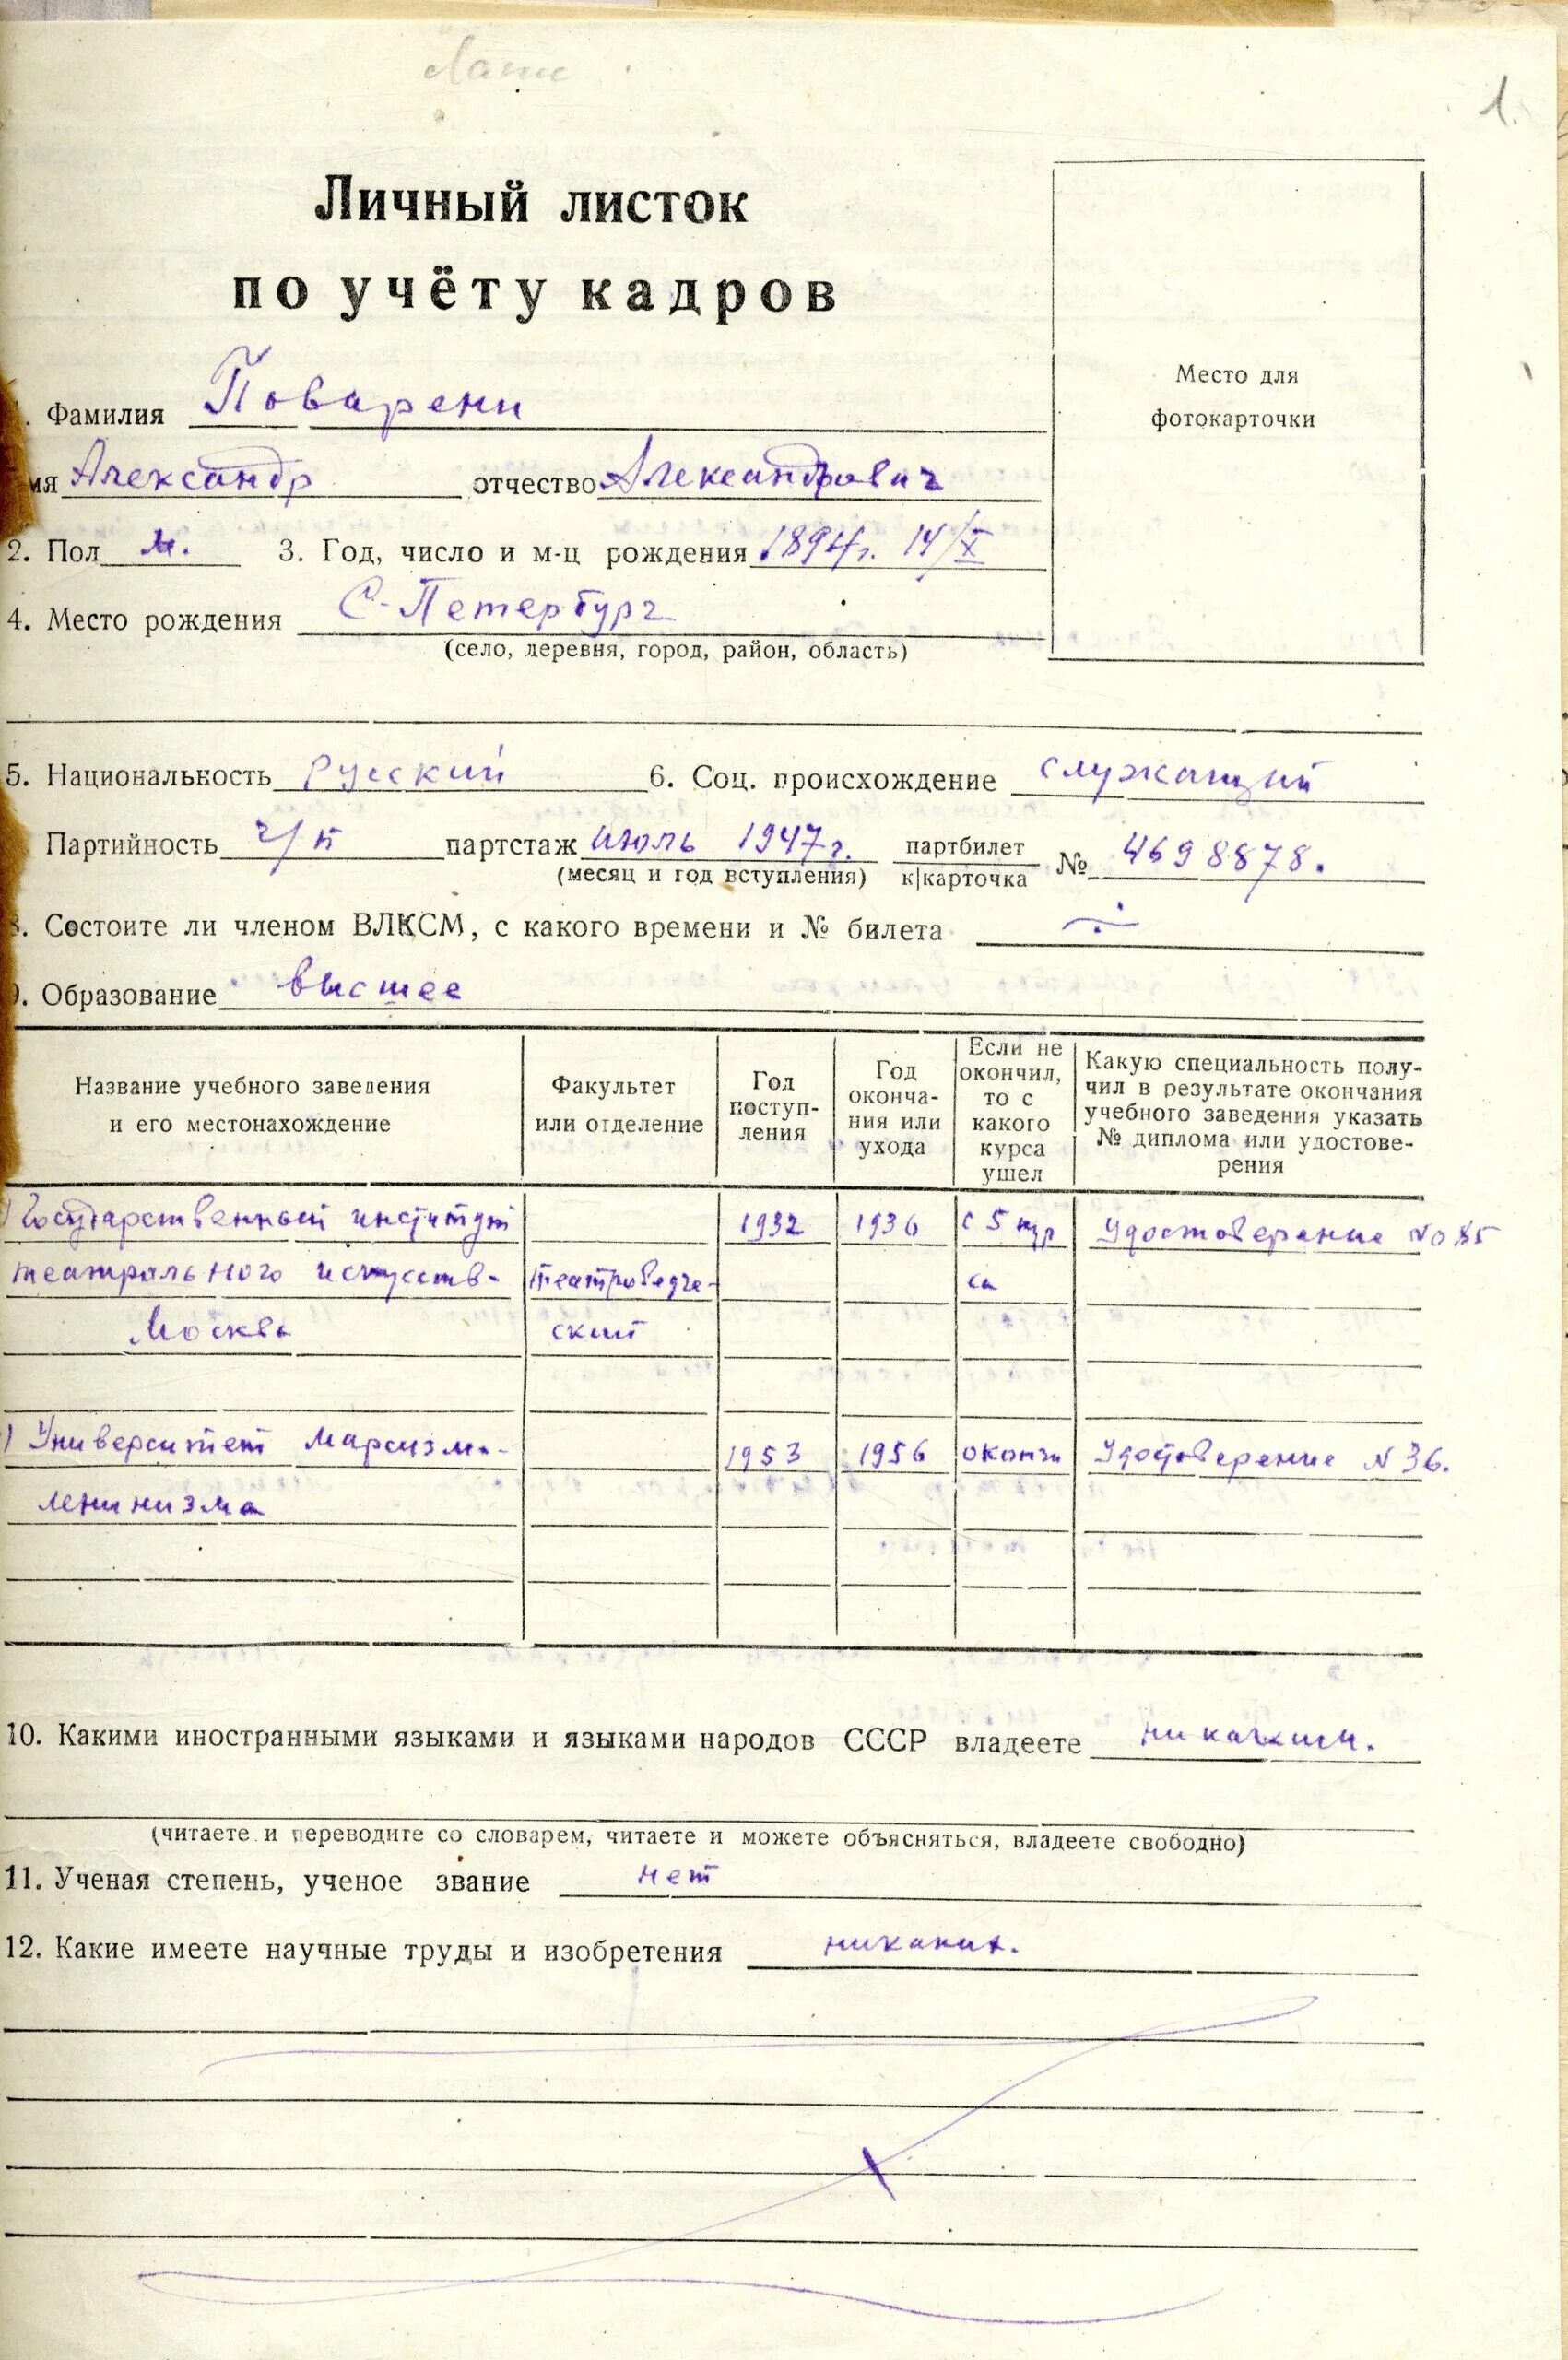 1.
Личный листок
по учёту кадров
Место для
фотокарточки
. Фамилия Поварени
мя Александр отчество Александрович
2. Пол м. 3. Год, число и м-ц рождения 1894г. 14/X
4. Место рождения С-Петербург
(село, деревня, город, район, область)
5. Национальность русский 6. Соц. происхождение служащий
Партийность ч/п партстаж июль 1947г. партбилет № 4698878.
(месяц и год вступления) к|карточка
8. Состоите ли членом ВЛКСМ, с какого времени и № билета
9. Образование высшее
Название учебного заведения и его местонахождение
Факультет или отделение
Год поступ-ления
Год оконча-ния или ухода
Если не окончил, то с какого курса ушел
Какую специальность полу-чил в результате окончания учебного заведения указать № диплома или удостове-рения
) Государственный институт 1932 1936 с 5 кур Удостоверение № 85
театрального искусств- театроведче- са
Москва ский
) Университет марсизма- 1953 1956 окончи Удостоверение № 36.
ленинизма
10. Какими иностранными языками и языками народов СССР владеете никакими.
(читаете и переводите со словарем, читаете и можете объясняться, владеете свободно)
11. Ученая степень, ученое звание нет
12. Какие имеете научные труды и изобретения никаких.